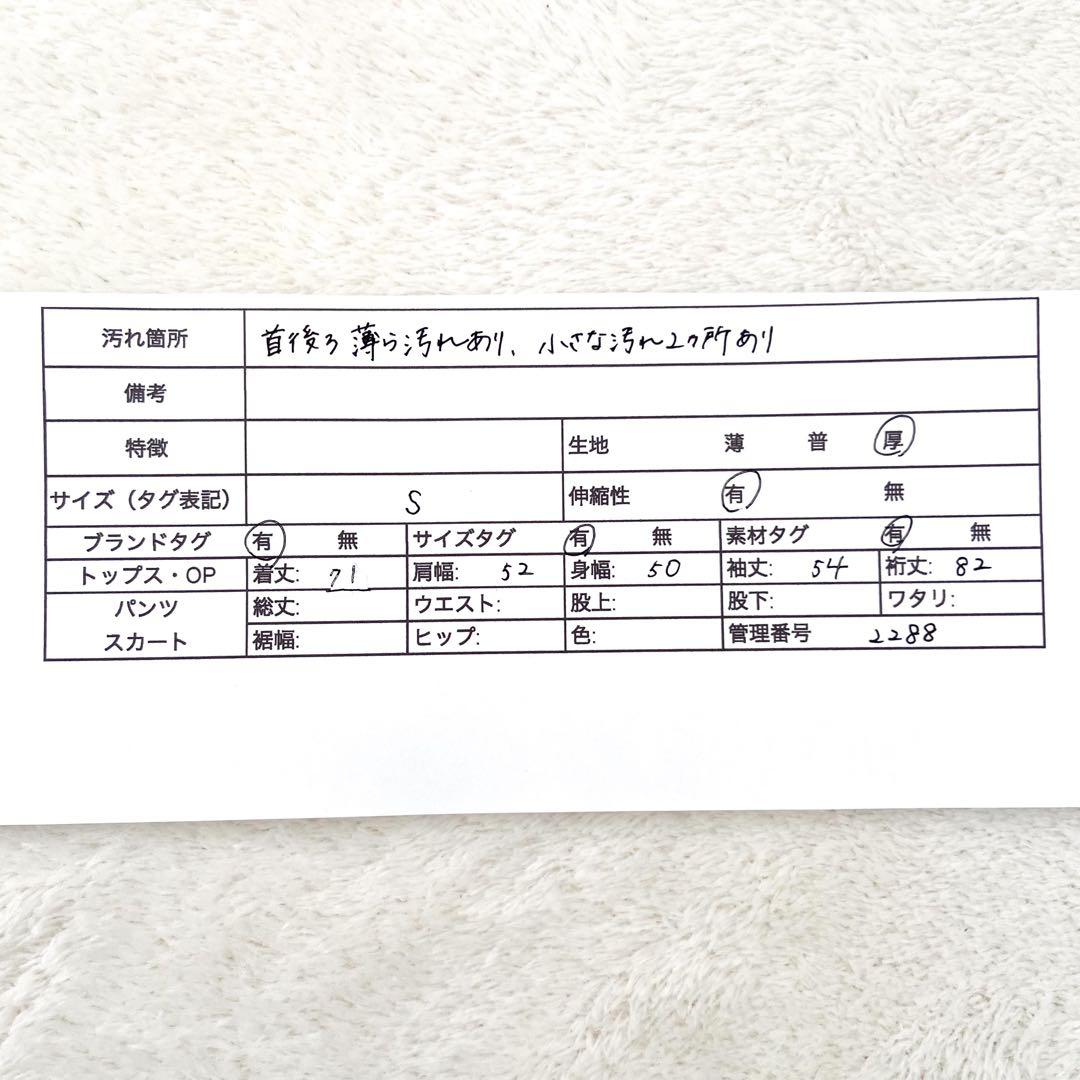 汚れ箇所 首後ろ薄ら汚れあり、小さな汚れ2カ所あり
備考
特徴 生地 薄 普 厚
サイズ（タグ表記） S 伸縮性 有 無
ブランドタグ 有 無 サイズタグ 有 無 素材タグ 有 無
トップス・OP 着丈: 71 肩幅: 52 身幅: 50 袖丈: 54 裄丈: 82
パンツ 総丈: ウエスト: 股上: 股下: ワタリ:
スカート 裾幅: ヒップ: 色: 管理番号 2288